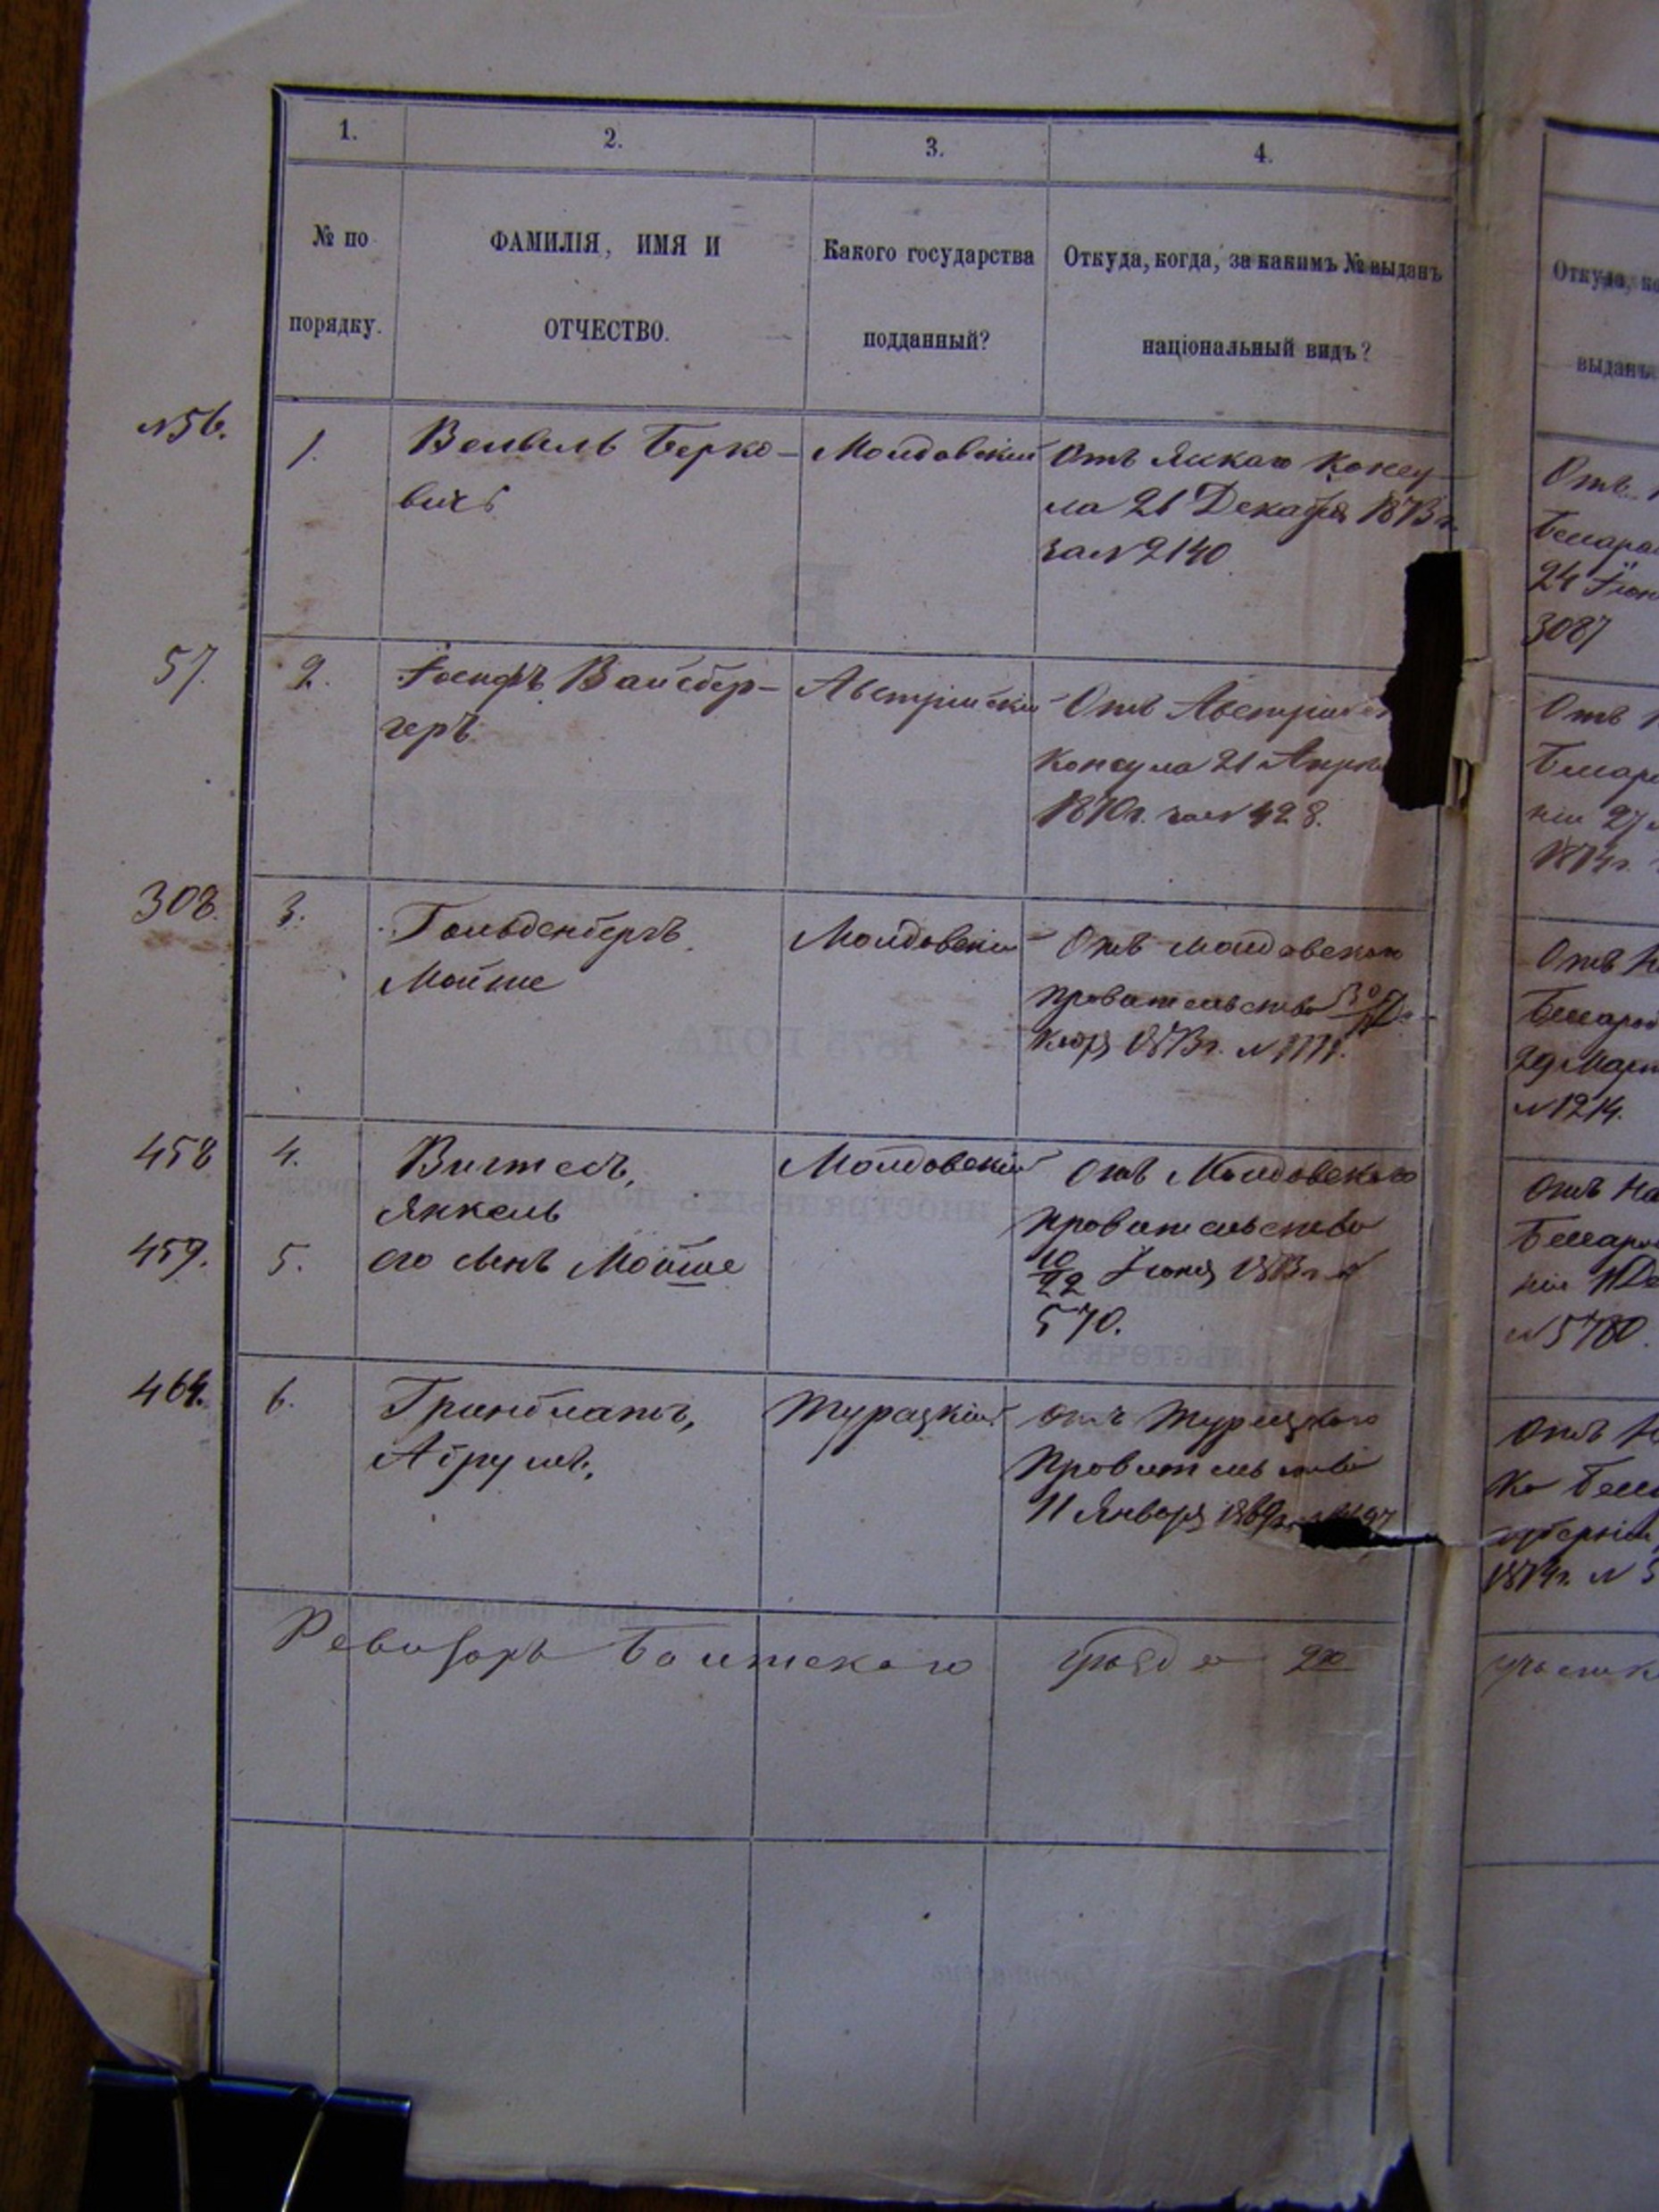 1.
2.
3.
4.
№ по
порядку.
ФАМИЛІЯ, ИМЯ И
ОТЧЕСТВО.
Какого государства
подданный?
Откуда, когда, за какимъ № выданъ
національный видъ?
№56.
1.
Велвель Берко-
вичъ
Молдовскій
Отъ Яскаго Консу-
ла 21 Декабря 1873 г.
за №2140
57.
2.
Іосифъ Вайсбер-
геръ
Австрійскій
Отъ Австрійск
Консула 21 Апрѣ
1870г. за № 428.
308.
3.
Гольденбергъ
Мойше
Молдовскій
Отъ Молдовского
Правительства 30 Де-
кабря 1873г. №
458
4.
Витесъ,
Янкель
Молдовскій
Отъ Молдовского
Правительства
10/22 Іюня 1873г. №
570.
459.
5.
его сынъ Мойше
464.
6.
Гринблатъ,
Абрумъ,
Турацкій
Отъ Турецкого
Правительства
11 Января 1869г.
Ревизоръ Балтскаго уѣзда 2го
Откуда, ко
выданъ
Отъ
Бессара
24 Іюн
3087
Отъ
Бессара
ніи 27
1874г.
Отъ На
Бессараб
29 Март
№1214.
Отъ На
Бессараб
ніи 11 Де
№5780.
Отъ Н
ка Бесс
губерніи
1874г. № 5
участк